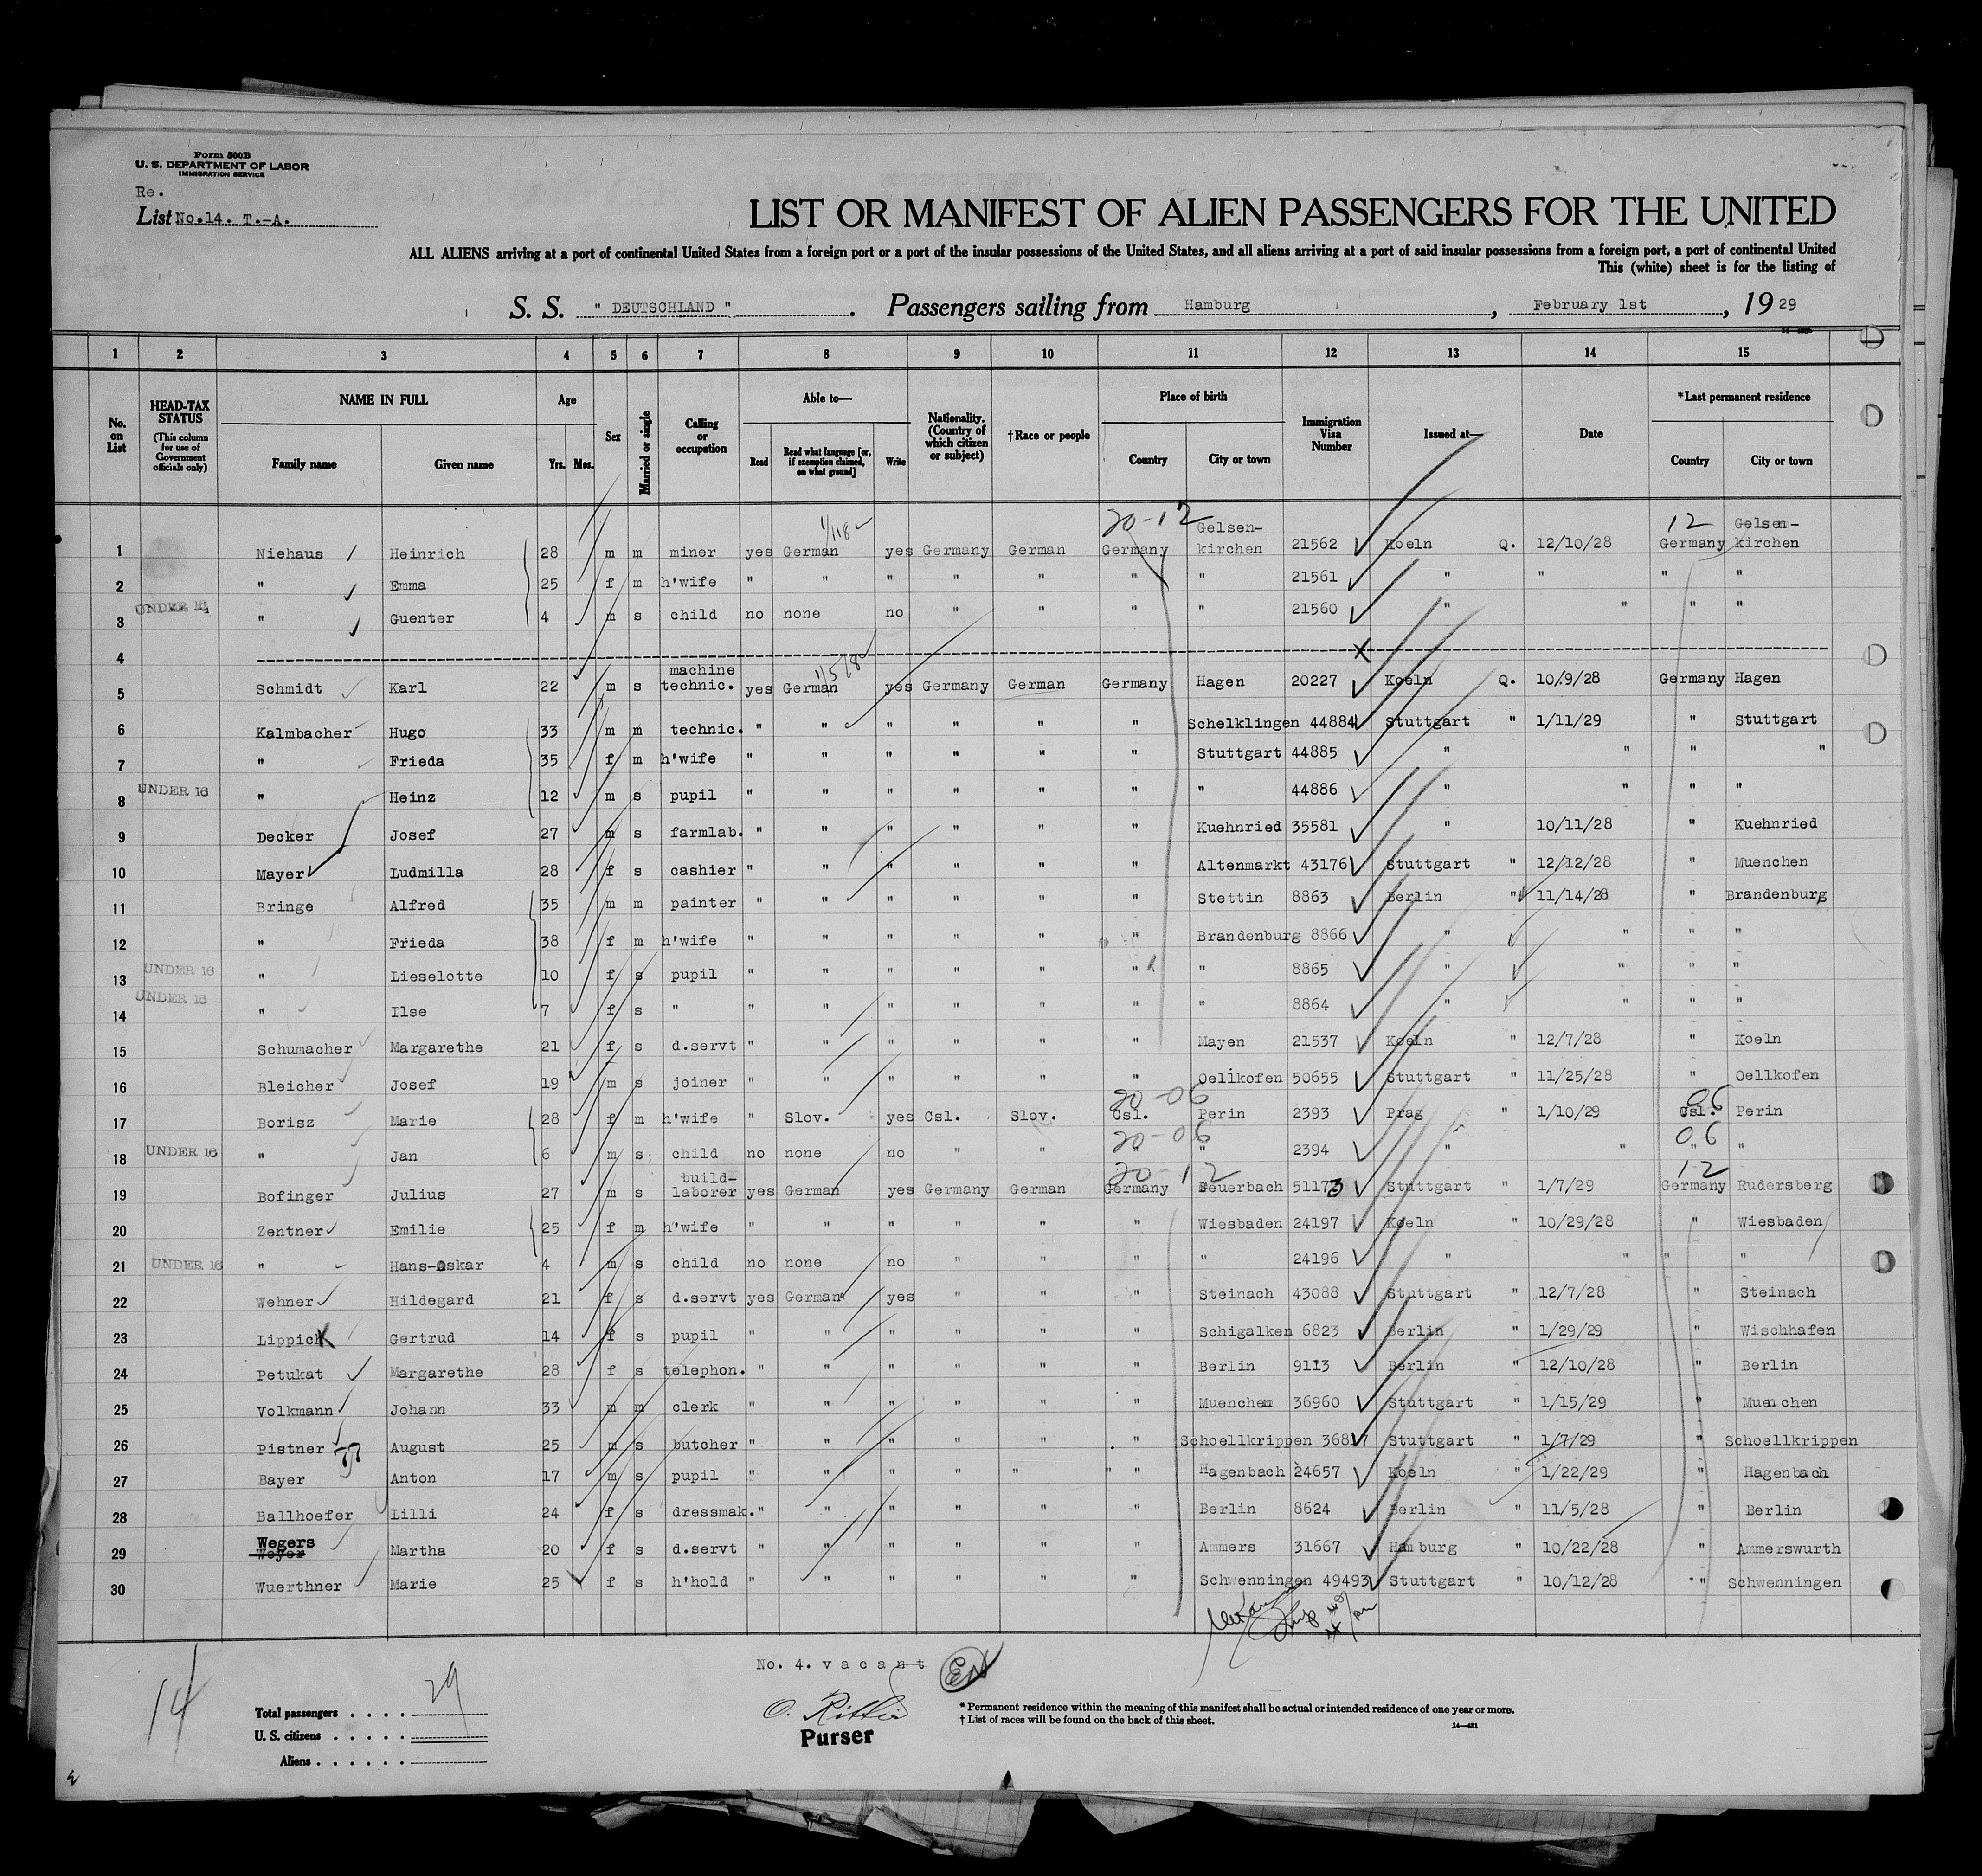 Form 500B
U. S. DEPARTMENT OF LABOR
IMMIGRATION SERVICE
Re.
List No.14. T.-A.
LIST OR MANIFEST OF ALIEN PASSENGERS FOR THE UNITED
ALL ALIENS arriving at a port of continental United States from a foreign port or a port of the insular possessions of the United States, and all aliens arriving at a port of said insular possessions from a foreign port, a port of continental United
This (white) sheet is for the listing of
S. S. " DEUTSCHLAND " . Passengers sailing from Hamburg , February 1st , 19 29
1 2 3 4 5 6 7 8 9 10 11 12 13 14 15
No. on List
HEAD-TAX STATUS
(This column for use of Government officials only)
NAME IN FULL
Family name Given name
Age
Yrs. Mos.
Sex
Married or single
Calling or occupation
Able to—
Read
Read what language [or, if exemption claimed, on what ground]
Write
Nationality. (Country of which citizen or subject)
†Race or people
Place of birth
Country City or town
Immigration Visa Number
Issued at—
Date
*Last permanent residence
Country City or town
20-12 Gelsen- 12 Gelsen-
1 Niehaus Heinrich 28 m m miner yes German yes Germany German Germany kirchen 21562 Koeln Q. 12/10/28 Germany kirchen
2 " Emma 25 f m h'wife " " " " " " " 21561 " " " "
UNDER 16
3 " Guenter 4 m s child no none no " " " " 21560 " " " "
4
machine
5 Schmidt Karl 22 m s technic. yes German yes Germany German Germany Hagen 20227 Koeln Q. 10/9/28 Germany Hagen
6 Kalmbacher Hugo 33 m m technic. " " " " " " Schelklingen 44884 Stuttgart " 1/11/29 " Stuttgart
7 " Frieda 35 f m h'wife " " " " " " Stuttgart 44885 " " " "
8 UNDER 16 " Heinz 12 m s pupil " " " " " " " 44886 " " " "
9 Decker Josef 27 m s farmlab. " " " " " " Kuehnried 35581 " 10/11/28 " Kuehnried
10 Mayer Ludmilla 28 f s cashier " " " " " " Altenmarkt 43176 Stuttgart " 12/12/28 " Muenchen
11 Bringe Alfred 35 m m painter " " " " " " Stettin 8863 Berlin " 11/14/28 " Brandenburg
12 " Frieda 38 f m h'wife " " " " " " Brandenburg 8866 " " " "
13 UNDER 16 " Lieselotte 10 f s pupil " " " " " " " 8865 " " " "
14 UNDER 16 " Ilse 7 f s " " " " " " " " 8864 " " " "
15 Schumacher Margarethe 21 f s d.servt " " " " " " Mayen 21537 Koeln " 12/7/28 " Koeln
16 Bleicher Josef 19 m s joiner " " " " " " Oelikofen 50655 Stuttgart " 11/25/28 " Oellkofen
20-06 06
17 Borisz Marie 28 f m h'wife " Slov. yes Csl. Slov. Csl. Perin 2393 Prag " 1/10/29 Csl. Perin
20-06 06
18 UNDER 16 " Jan 6 m s child no none no " " " " 2394 " " " "
build- 20-12 12
19 Bofinger Julius 27 m s laborer yes German yes Germany German Germany Feuerbach 51173 Stuttgart " 1/7/29 Germany Rudersberg
20 Zentner Emilie 25 f m h'wife " " " " " " Wiesbaden 24197 Koeln " 10/29/28 " Wiesbaden
21 UNDER 16 " Hans-Oskar 4 m s child no none no " " " " 24196 " " " "
22 Wehner Hildegard 21 f s d.servt yes German yes " " " Steinach 43088 Stuttgart " 12/7/28 " Steinach
23 Lippick Gertrud 14 f s pupil " " " " " " Schigalken 6823 Berlin " 1/29/29 " Wischhafen
24 Petukat Margarethe 28 f s telephon. " " " " " " Berlin 9113 Berlin " 12/10/28 " Berlin
25 Volkmann Johann 33 m m clerk " " " " " " Muenchen 36960 Stuttgart " 1/15/29 " Muenchen
26 Pistner August 25 m s butcher " " " " " " Schoellkrippen 36817 Stuttgart " 1/7/29 " Schoellkrippen
27 Bayer Anton 17 m s pupil " " " " " " " Hagenbach 24657 Koeln " 1/22/29 " Hagenbach
28 Ballhoefer Lilli 24 f s dressmak. " " " " " " Berlin 8624 Berlin " 11/5/28 " Berlin
Wegers
29 Weyer Martha 20 f s d.servt " " " " " " Ammers 31667 Hamburg " 10/22/28 " Ammerswurth
30 Wuerthner Marie 25 f s h'hold " " " " " " Schwenningen 49493 Stuttgart " 10/12/28 " Schwenningen
No. 4. vacant
14
Total passengers . . . . 29
U. S. citizens . . . . .
Aliens . . . . . .
O. Ritter
Purser
* Permanent residence within the meaning of this manifest shall be actual or intended residence of one year or more.
† List of races will be found on the back of this sheet.
14—421